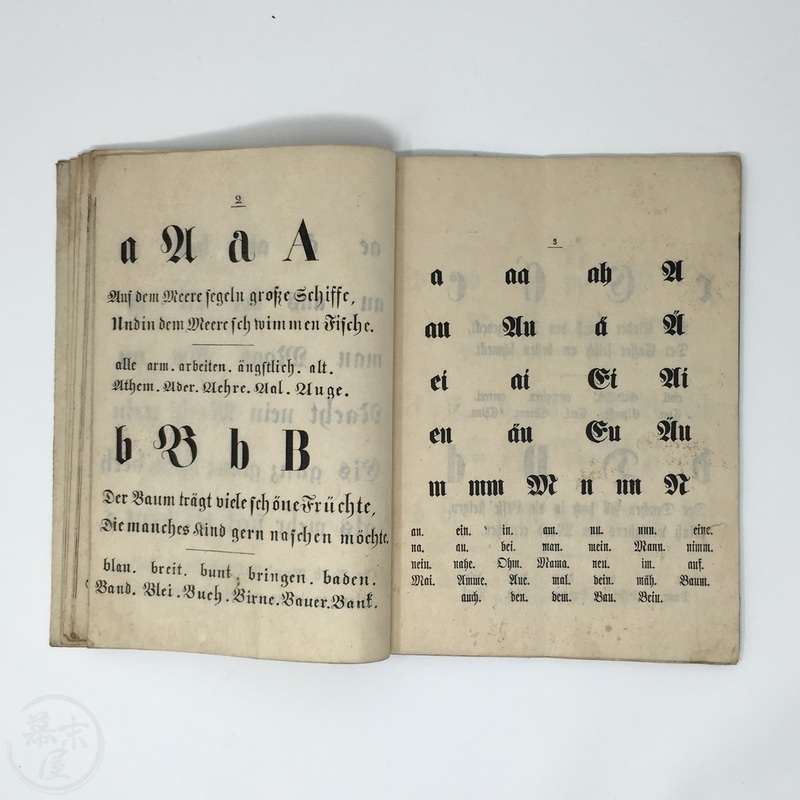 2
a A a A
Auf dem Meere segeln große Schiffe,
Und in dem Meere schwimmen Fische.
alle arm. arbeiten. ängstlich. alt.
Athem. Ader. Aehre. Aal. Auge.
b B b B
Der Baum trägt viele schöne Früchte,
Die manches Kind gern naschen möchte.
blau. breit. bunt. bringen. baden.
Band. Blei. Buch. Birne. Bauer. Bank.
3
a aa ah A
au Au ä Ä
ei ai Ei Ai
eu äu Eu Äu
m mm M n nn N
an. ein. in. am. nu. nun. eine.
na. au. bei. man. mein. Mann. nimm.
nein. nahe. Ohm. Mama. neu. im. auf.
Mai. Amme. Aue. mal. dein. mäh. Baum.
auch. den. dem. Bau. Bein.
幕末屋